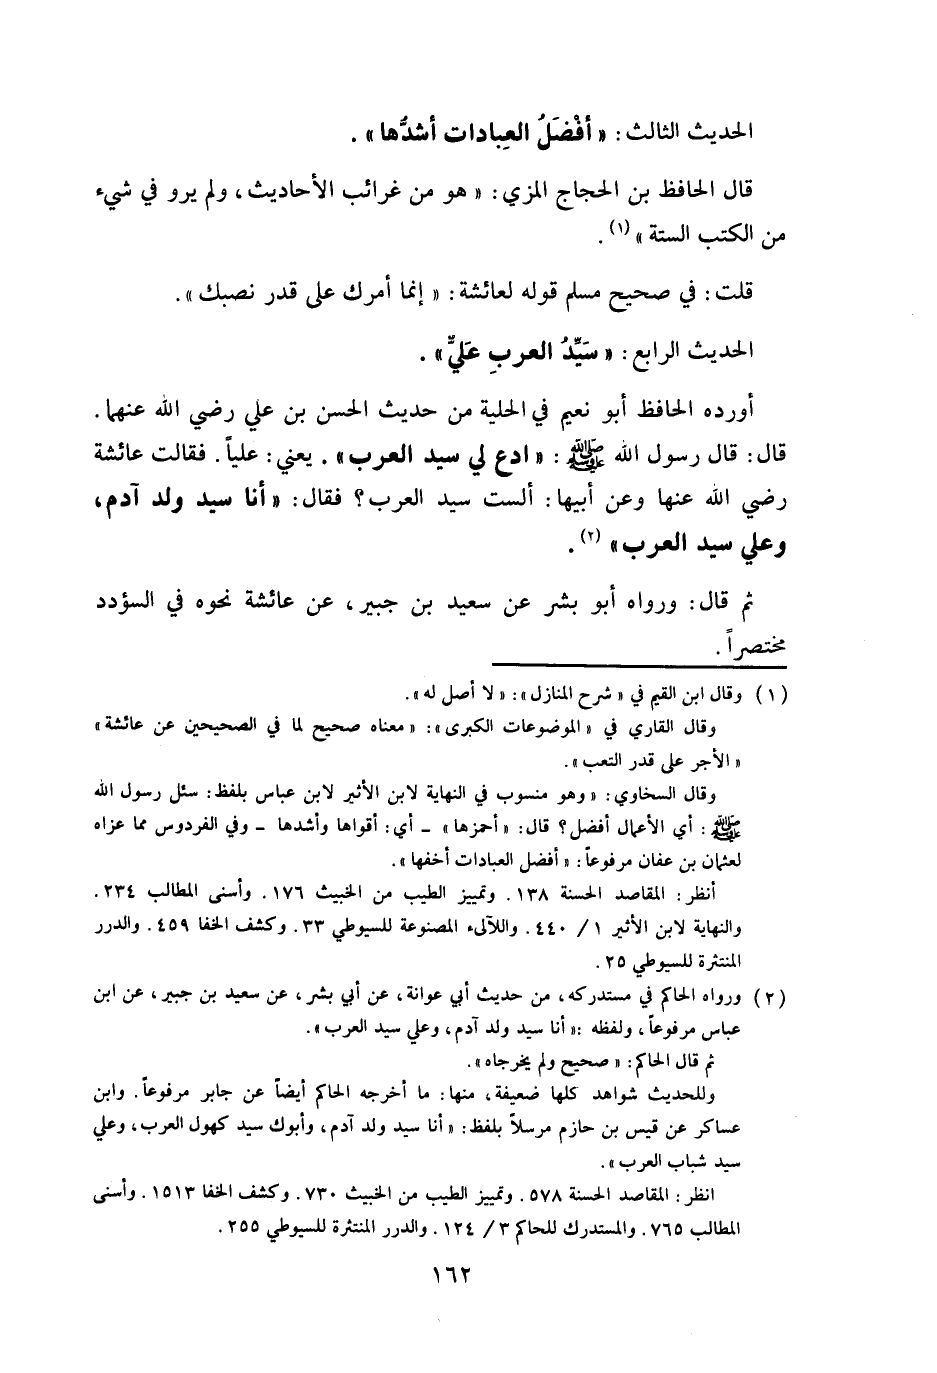 الحديث الثالث: « أفْضَلُ العِبادات أشدُّها » .
قال الحافظ بن الحجاج المزي: « هو من غرائب الأحاديث، ولم يرو في شيء
من الكتب الستة » (١) .
قلت: في صحيح مسلم قوله لعائشة: « إنما أمرك على قدر نصبك ».
الحديث الرابع: « سَيِّدُ العربِ عَليٌّ » .
أورده الحافظ أبو نعيم في الحلية من حديث الحسن بن علي رضي الله عنهما.
قال: قال رسول الله ﷺ: « ادع لي سيد العرب ». يعني: علياً. فقالت عائشة
رضي الله عنها وعن أبيها: ألست سيد العرب؟ فقال: « أنا سيد ولد آدم،
وعلي سيد العرب » (٢) .
ثم قال: ورواه أبو بشر عن سعيد بن جبير، عن عائشة نحوه في السؤدد
مختصراً.
(١) وقال ابن القيم في « شرح المنازل »: « لا أصل له ».
وقال القاري في « الموضوعات الكبرى »: « معناه صحيح لما في الصحيحين عن عائشة »
« الأجر على قدر التعب ».
وقال السخاوي: « وهو منسوب في النهاية لابن الأثير لابن عباس بلفظ: سئل رسول الله
ﷺ: أي الأعمال أفضل؟ قال: « أحمزها » - أي: أقواها وأشدها - وفي الفردوس مما عزاه
لعثمان بن عفان مرفوعاً: « أفضل العبادات أخفها ».
أنظر: المقاصد الحسنة ١٣٨. وتمييز الطيب من الخبيث ١٧٦. وأسنى المطالب ٢٣٤.
والنهاية لابن الأثير ١/ ٤٤٠. واللآلىء المصنوعة للسيوطي ٣٣. وكشف الخفا ٤٥٩. والدرر
المنتثرة للسيوطي ٢٥.
(٢) ورواه الحاكم في مستدركه، من حديث أبي عوانة، عن أبي بشر، عن سعيد بن جبير، عن ابن
عباس مرفوعاً، ولفظه :« أنا سيد ولد آدم، وعلي سيد العرب ».
ثم قال الحاكم: « صحيح ولم يخرجاه ».
وللحديث شواهد كلها ضعيفة، منها: ما أخرجه الحاكم أيضاً عن جابر مرفوعاً. وابن
عساكر عن قيس بن حازم مرسلاً بلفظ: « أنا سيد ولد آدم، وأبوك سيد كهول العرب، وعلي
سيد شباب العرب ».
انظر: المقاصد الحسنة ٥٧٨. وتمييز الطيب من الخبيث ٧٣٠. وكشف الخفا ١٥١٣. وأسنى
المطالب ٧٦٥. والمستدرك للحاكم ٣/ ١٢٤. والدرر المنتثرة للسيوطي ٢٥٥.
١٦٢